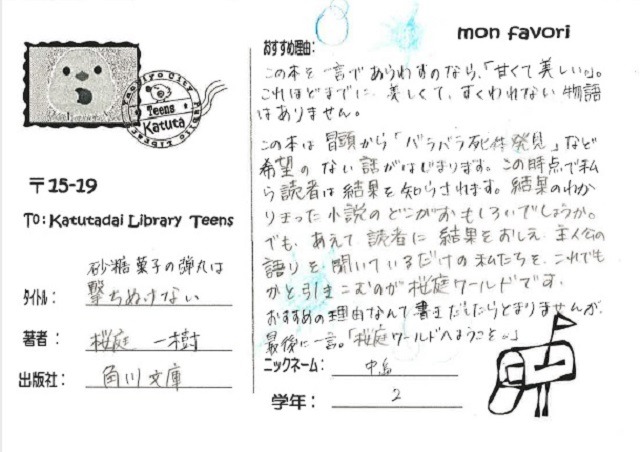 mon favori
Yachiyo City Public Library
Teens
Katuta
〒15-19
To: Katutadai Library Teens
タイトル: 砂糖菓子の弾丸は
撃ちぬけない
著者: 桜庭 一樹
出版社: 角川文庫
おすすめ理由:
この本を一言であらわすのなら、「甘くて美しい」。
これほどまでに、美しくて、すくわれない物語
はありません。
この本は冒頭から「バラバラ死体発見」など
希望のない話がはじまります。この時点で私
ら読者は結果を知らされます。結果のわか
りきった小説のどこがおもしろいでしょうか。
でも、あえて読者に結果をおしえ、主人公の
語りを聞いているだけの私たちを、これでも
かと引きこむのが桜庭ワールドです。
おすすめの理由なんて書きだしたらとまりませんが、
最後に一言。「桜庭ワールドへようこそ。」
ニックネーム: 中島
学年: 2